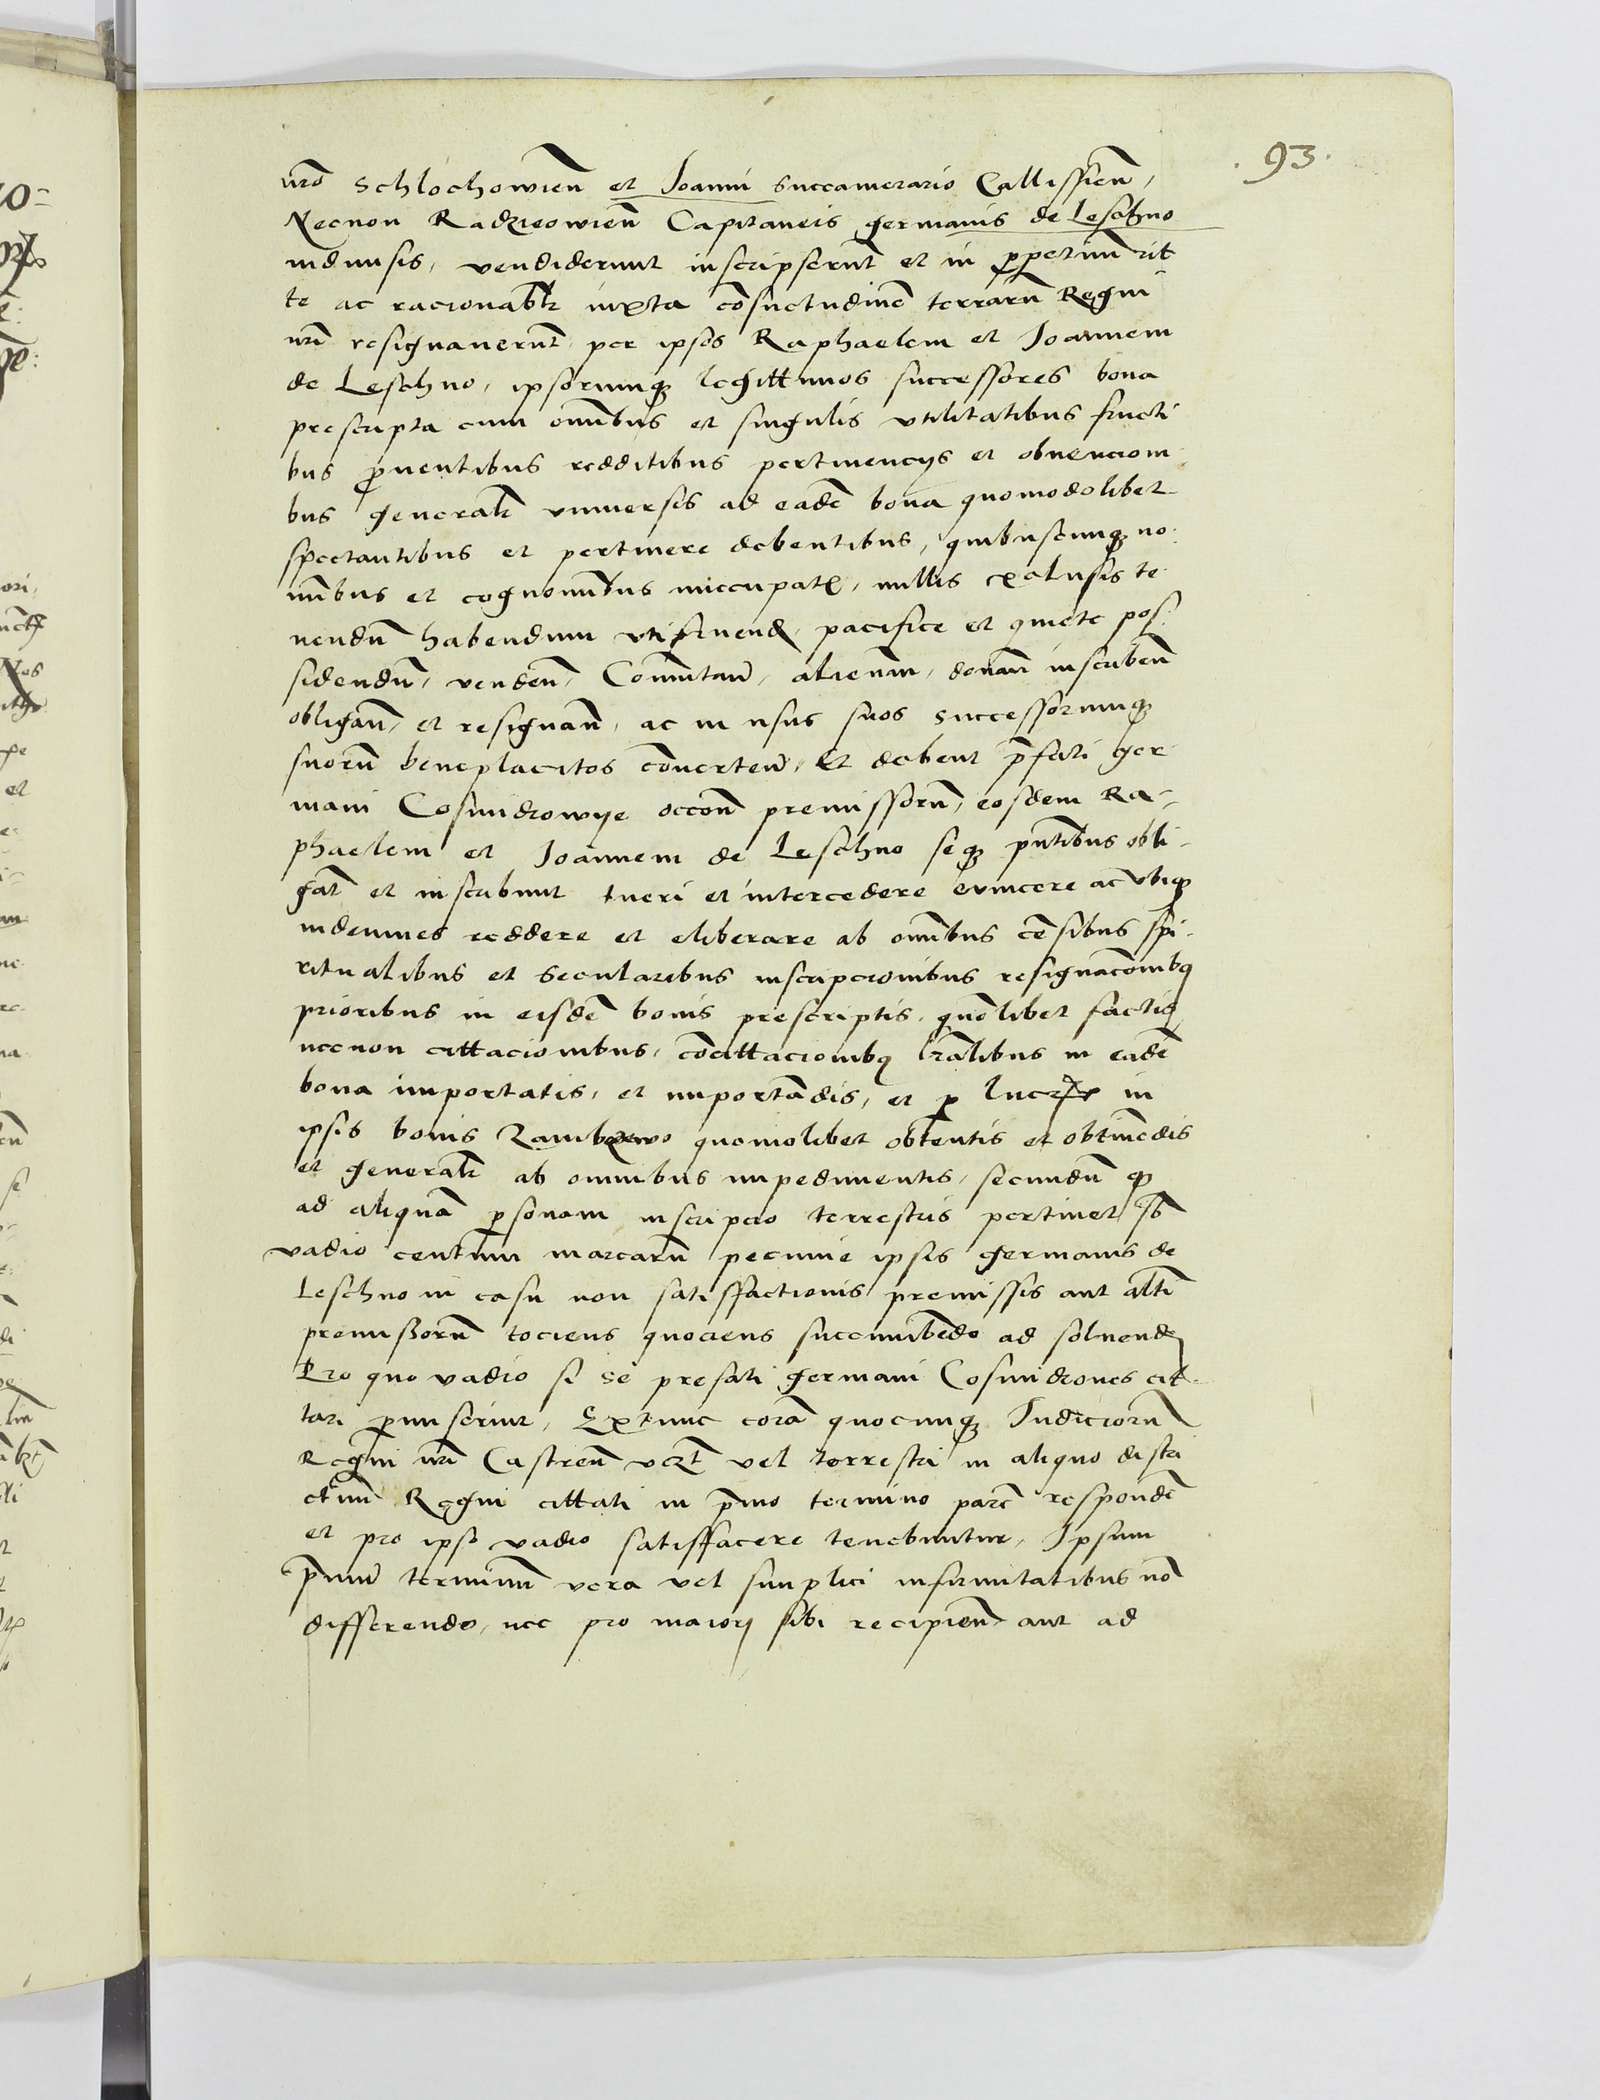 93.
nr̄o Schlochowien̄ et Joanni Succamerario Callissien̄,
Necnon Radzieowien̄ Capitaneis germanis de Leschno
indiuisis, vendiderunt inscripserun̄t et in ꝑpetuum rit
te ac racionabl̄r iuxta cōsuetudinē terrarū Regni
nr̄i resignauerun̄t per ipsos Raphaelem et Joannem
de Leschno, ipsorumqꝫ legittimos successores bona
prescripta cum om̄ibus et singulis vtilitatibus fructi
bus ꝓuentibus redditibus pertinencijs et obuencioni
bus generalr̄ vniuersis ad eadē bona quomodolibet
spectantibus et pertinere debentibus, quibuscumqꝫ no
mībus et cognomībus nuccupatꝭ, nullis exclusis te
nendū habendum vtifruend̄ pacifice et quiete pos
sidendū, venden̄, Commutan̄, alienan̄, donan̄ inscriben̄
obligan̄, et resignan̄, ac in usus suos successorumqꝫ
suorū beneplacitos cōuerten̄, Et debent p̄fati ger
mani Cosmidrowye occon̄e premissorū, eosdem Ra-
phaelem et Joannem de Leschno seqꝫ pn̄tibus obli-
gan̄t et inscribunt tueri et intercedere euincere ac vbiqꝫ
indemnes reddere et eliberare ab om̄ibus cēsibus spi-
ritualibus et Secularibus inscripcionibus resignacōnibꝰ
prioribus in eisdē bonis prescriptis, quōlibet factis
necnon cittacionibus, cōcittacionibꝰ lr̄alibus in eadē
bona importatis, et importādis, et ꝑ lucrꝭ in
ipsis bonis Zambrzewo quomolibet obtentis et obtinēdis
et generalr̄ ab omnibus impedimentis, secundū qꝫ
ad aliquā ꝑsonam inscripcio terrestris pertinet sb̄
vadio centum marcarū pecunie ipsis germanis de
Leschno in casu non satisffactionis premissis aut alti
premissorū tociens quociens succumbēdo ad soluend̄
Pro quo vadio si se prefati germani Cosmidrones cit
tari ꝑmiserint, Extunc corā quocumqꝫ Judiciorū
Regni nr̄i Castren̄ vꝫt vel terrestri in aliquo distri
ctuū Regni cittati in p̄mo termino parē respondē
et pro ipso vadio satisffacere tenebuntur, Ipsum
p̄mū terminū vera vel simplici infirmitatibus nō
differendo, nec pro maiorj sibi recipien̄ aut ad